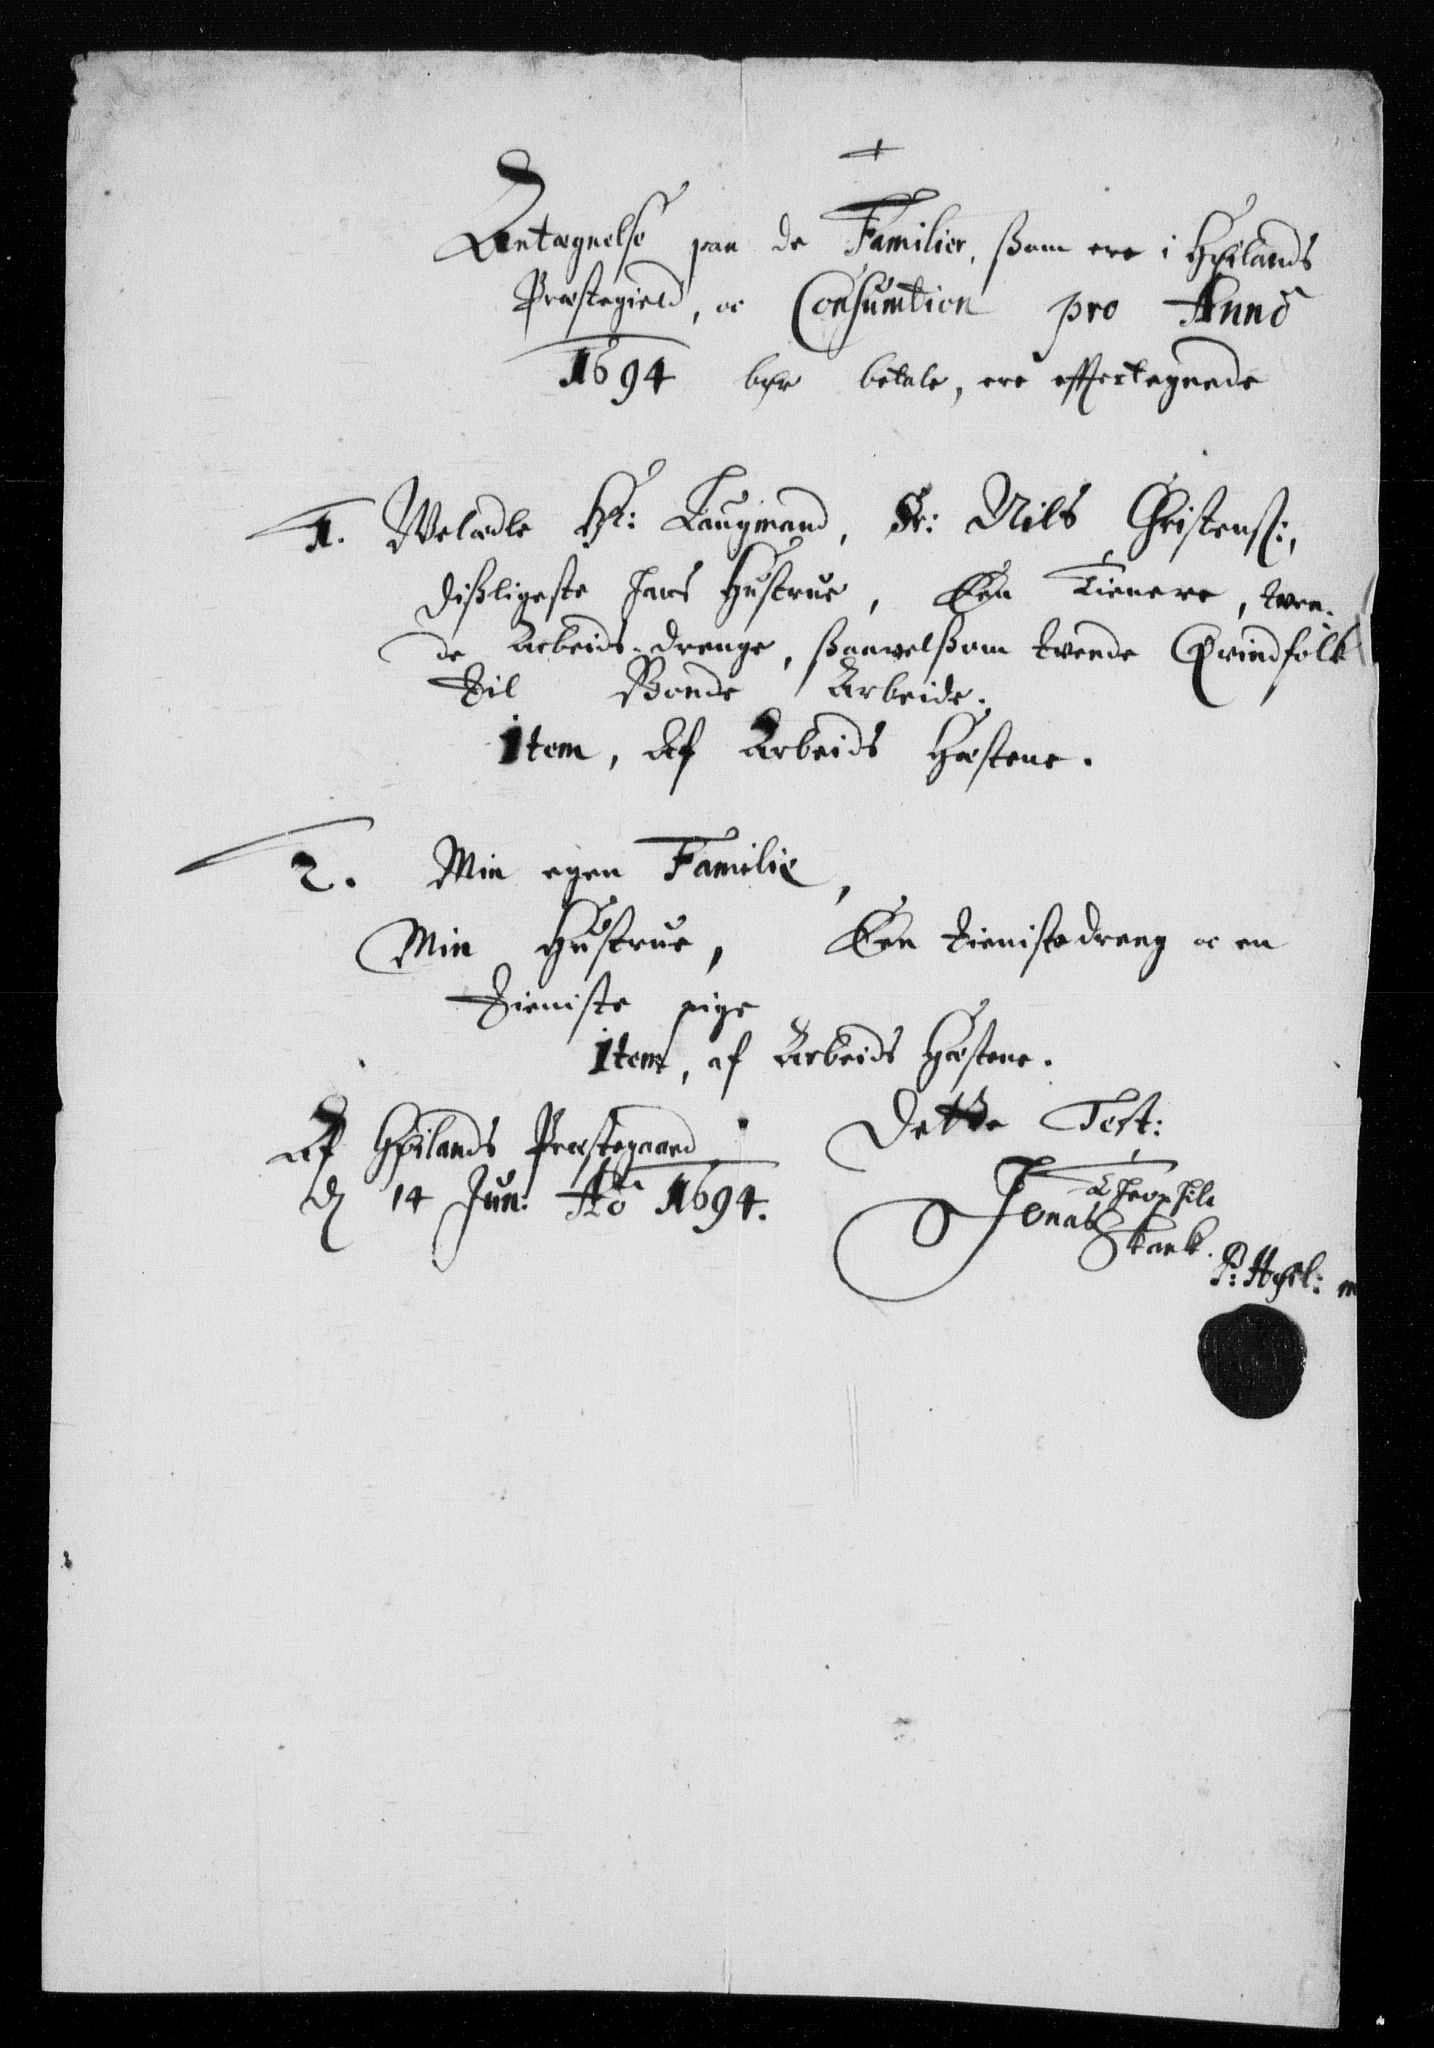 +
Antegnelse paa de Familier, ßom ere i Høilands
Præstegield, oc Consumtion pro Anno
1694 bør betale, ere effterteg̅nede
1. Welædle Hr: Laugmand, Sr: Nils Christenß:,
dißligeste hans Hustrue, Een Tienere, twen-
de Arbeids-drenge, ßaavelßom tvende Qvindfolk
til Bonde Arbeide.
Item, Af Arbeids Hæstene.
2. Min egen Familie,
Min Hustrue, Een tienistedreng oc en
tieniste pige
Item, af Arbeids Hæstene.
Af Høilands Præstegaard
d 14 Jun: Ao 1694.
Dette Test:
Jonas Theophili
Skank.
P: Høil: m